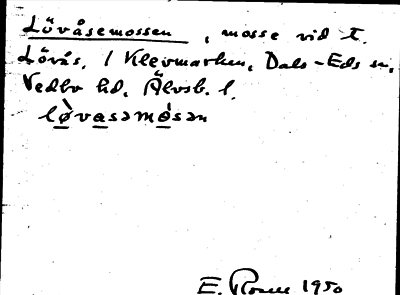 Lövåsemossen, mosse vid t.
Lövås, 1 Klevmarken, Dals-Eds sn,
Vedbo hd. Älvsb. l.
lø̀vasəmósən
E. Rosell 1950